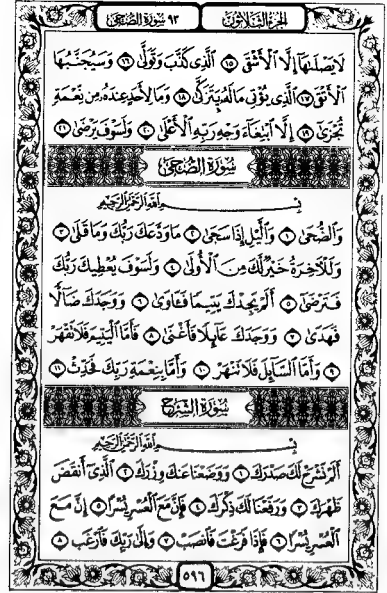 الجزء الثلاثون
٩٣ سورة الضحى
لَا يَصْلَىٰهَآ إِلَّا ٱلْأَشْقَى ١٥ ٱلَّذِى كَذَّبَ وَتَوَلَّىٰ ١٦ وَسَيُجَنَّبُهَا
ٱلْأَتْقَى ١٧ ٱلَّذِى يُؤْتِى مَالَهُۥ يَتَزَكَّىٰ ١٨ وَمَا لِأَحَدٍ عِندَهُۥ مِن نِّعْمَةٍ
تُجْزَىٰٓ ١٩ إِلَّا ٱبْتِغَآءَ وَجْهِ رَبِّهِ ٱلْأَعْلَىٰ ٢٠ وَلَسَوْفَ يَرْضَىٰ ٢١
سورة الضحى
بِسْمِ ٱللَّهِ ٱلرَّحْمَٰنِ ٱلرَّحِيمِ
وَٱلضُّحَىٰ ١ وَٱلَّيْلِ إِذَا سَجَىٰ ٢ مَا وَدَّعَكَ رَبُّكَ وَمَا قَلَىٰ ٣
وَلَلْءَاخِرَةُ خَيْرٌ لَّكَ مِنَ ٱلْأُولَىٰ ٤ وَلَسَوْفَ يُعْطِيكَ رَبُّكَ
فَتَرْضَىٰٓ ٥ أَلَمْ يَجِدْكَ يَتِيمًا فَـَٔاوَىٰ ٦ وَوَجَدَكَ ضَآلًّا
فَهَدَىٰ ٧ وَوَجَدَكَ عَآئِلًا فَأَغْنَىٰ ٨ فَأَمَّا ٱلْيَتِيمَ فَلَا تَقْهَرْ
٩ وَأَمَّا ٱلسَّآئِلَ فَلَا تَنْهَرْ ١٠ وَأَمَّا بِنِعْمَةِ رَبِّكَ فَحَدِّثْ ١١
سورة الشرح
بِسْمِ ٱللَّهِ ٱلرَّحْمَٰنِ ٱلرَّحِيمِ
أَلَمْ نَشْرَحْ لَكَ صَدْرَكَ ١ وَوَضَعْنَا عَنكَ وِزْرَكَ ٢ ٱلَّذِىٓ أَنقَضَ
ظَهْرَكَ ٣ وَرَفَعْنَا لَكَ ذِكْرَكَ ٤ فَإِنَّ مَعَ ٱلْعُسْرِ يُسْرًا ٥ إِنَّ مَعَ
ٱلْعُسْرِ يُسْرًا ٦ فَإِذَا فَرَغْتَ فَٱنصَبْ ٧ وَإِلَىٰ رَبِّكَ فَٱرْغَب ٨
٥٩٦